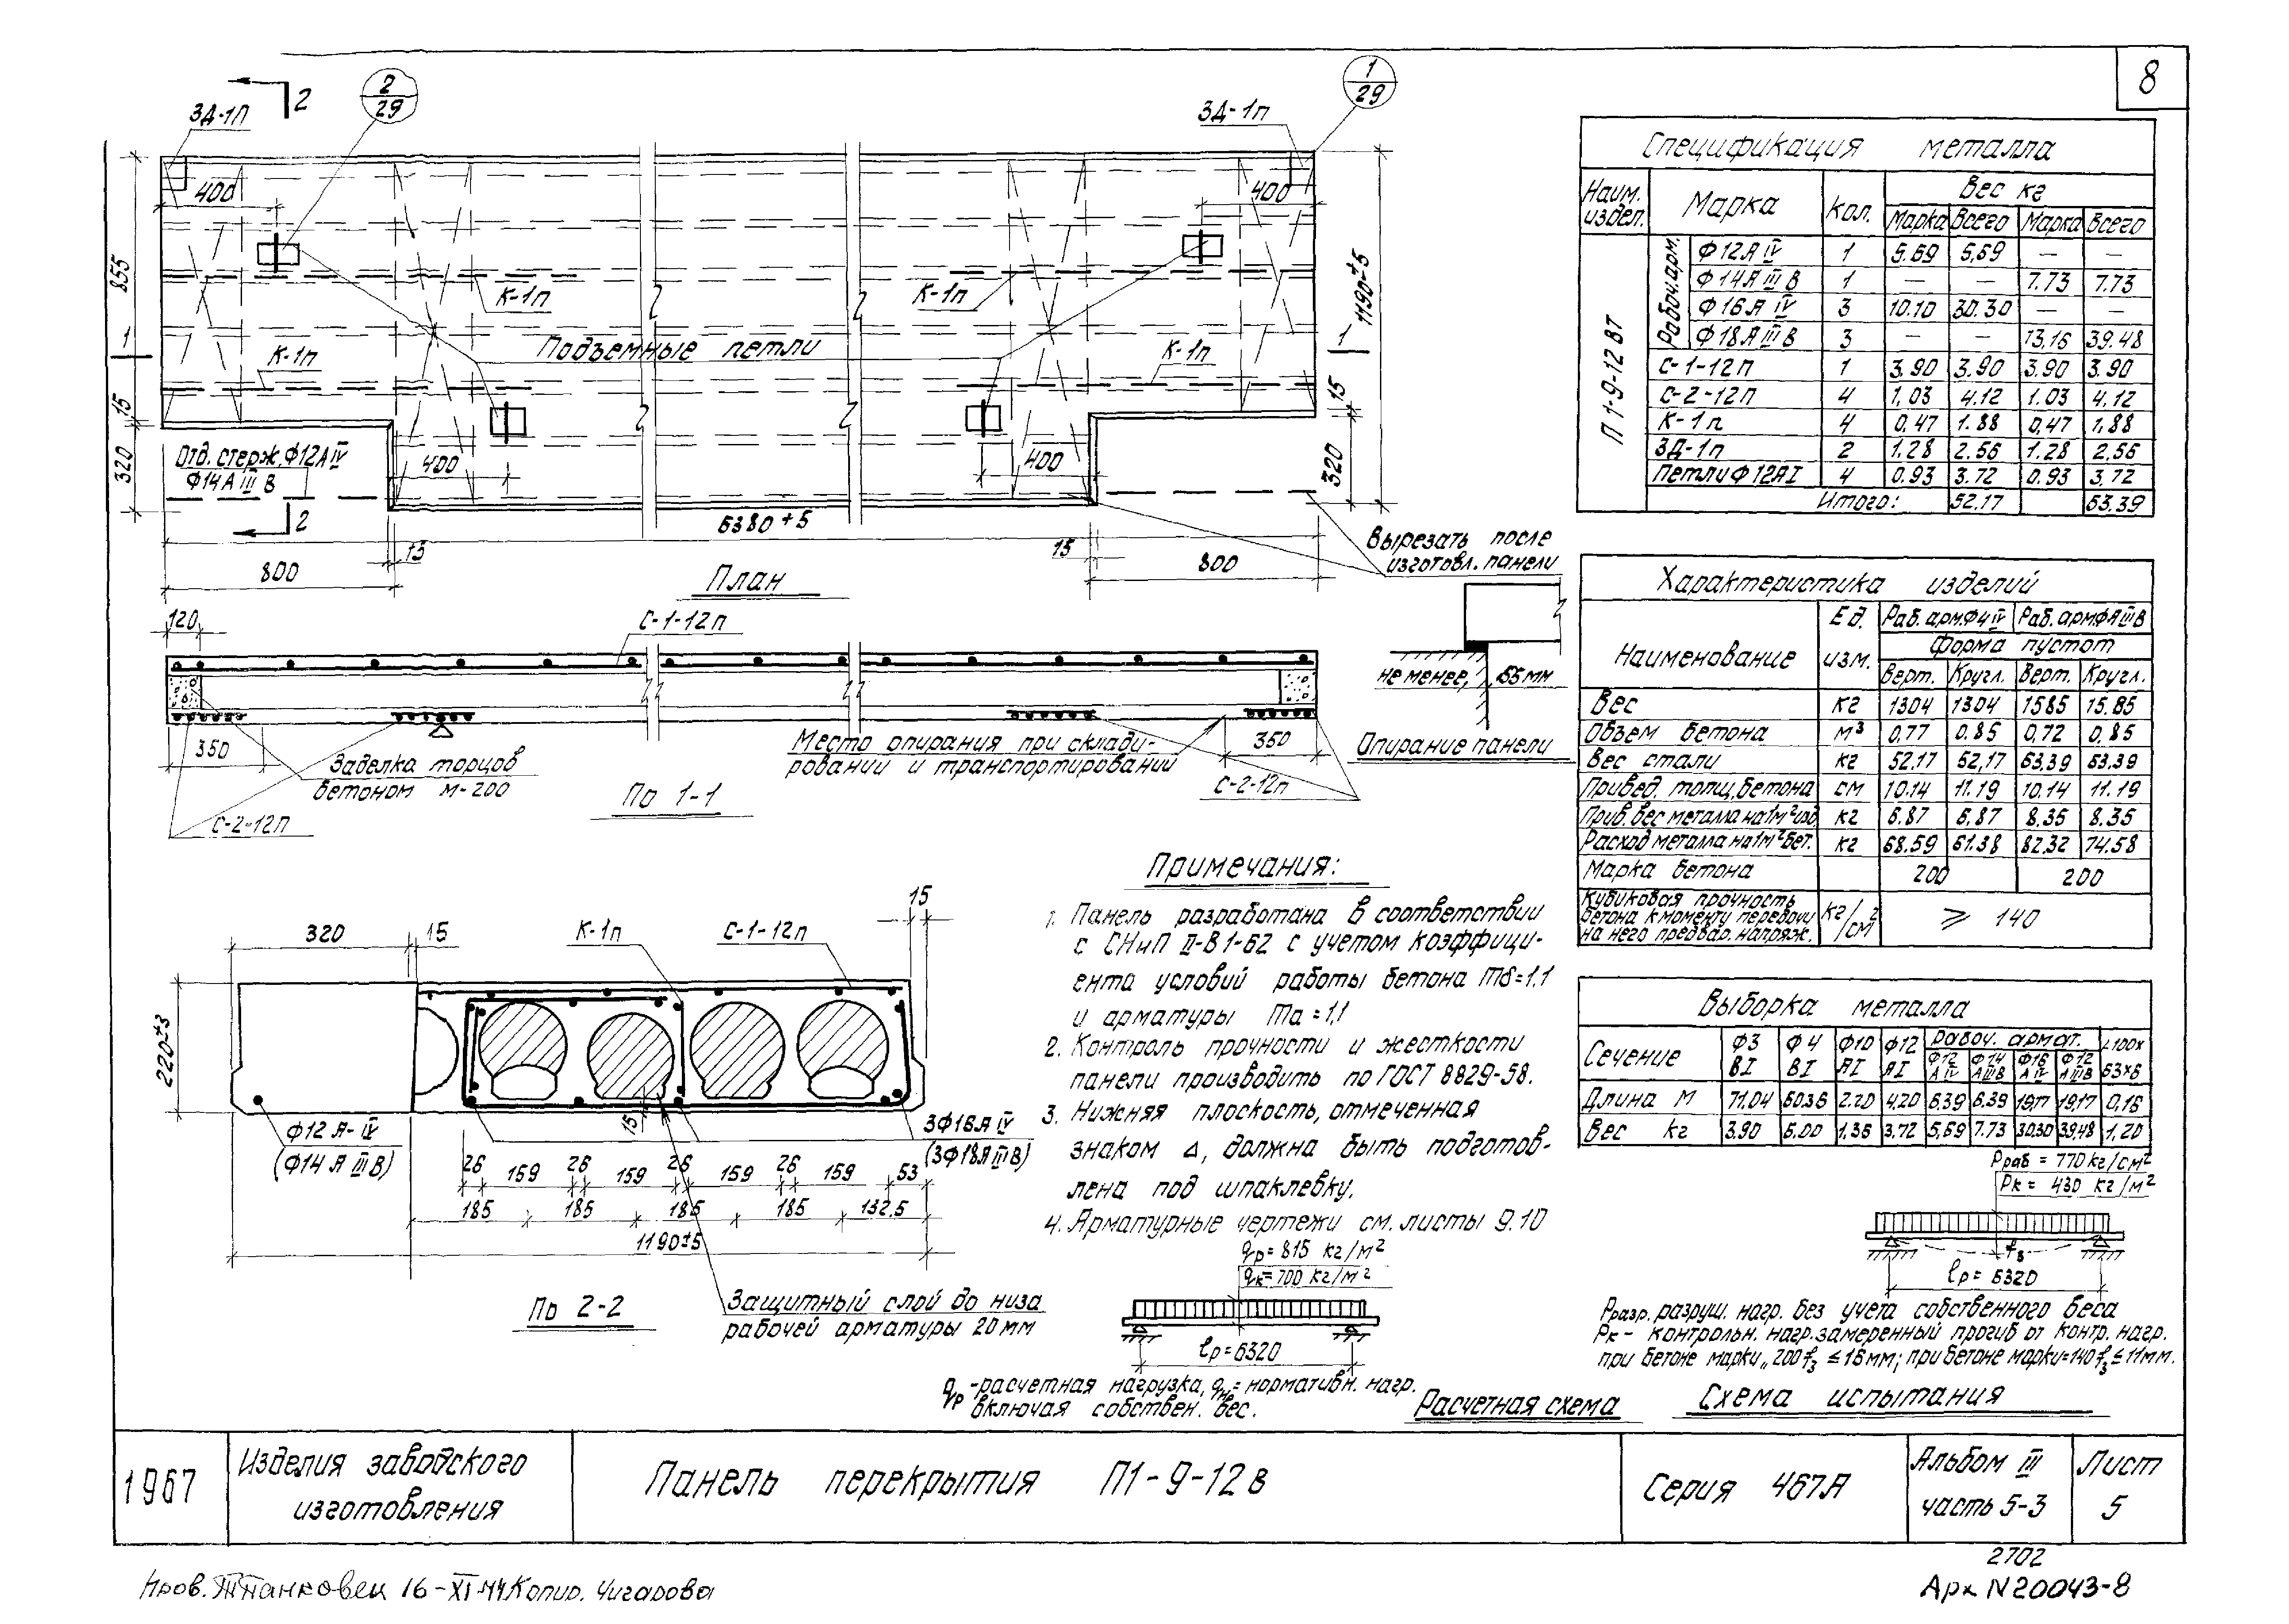 8
2
2
29
1
29
ЗД-1П
ЗД-1п
400
400
855
1190±5
К-1п
К-1п
1
1
Подъемные петли
К-1п
К-1п
15
15
320
320
Отд. стерж. Ф12АIV
Ф14АIIIВ
400
400
2
6380±5
15
15
800
800
Вырезать после
изготовл. панели
План
120
С-1-12п
не менее, 55мм
350
350
Заделка торцов
бетоном М-200
Место опирания при склади-
ровании и транспортировании
Опирание панели
С-2-12п
С-2-12п
По 1-1
320
15
К-1п
С-1-12п
15
220±3
Ф12 А-IV
(Ф14 А IIIВ)
15
3Ф16А IV
(3Ф18АIIIВ)
26 159 26 159 26 159 26 159 53
185 185 185 185 132,5
1190±5
По 2-2
Защитный слой до низа
рабочей арматуры 20мм
Примечания:
1. Панель разработана в соответствии
с СНиП II-В 1-62 с учетом коэффици-
ента условий работы бетона mб=1,1
и арматуры mа=1,1
2. Контроль прочности и жесткости
панели производить по ГОСТ 8829-58.
3. Нижняя плоскость, отмеченная
знаком Δ, должна быть подготов-
лена под шпаклевку.
4. Арматурные чертежи см. листы 9.10
qр=815 кг/м²
qк=700 кг/м²
ℓр=6320
qр-расчетная нагрузка, qн=нормативн. нагр.
включая собствен. вес.
Расчетная схема
Спецификация металла
Наим. издел. Марка Кол. Вес кг
Марка Всего Марка Всего
П 1-9-12 ВТ
Рабоч.арм.
Ф12А IV 1 5.69 5,69 — —
Ф14А III В 1 — — 7.73 7.73
Ф16А IV 3 10.10 30.30 — —
Ф18А III В 3 — — 13,16 39.48
С-1-12П 1 3.90 3.90 3.90 3.90
С-2-12П 4 1,03 4.12 1.03 4,12
К-1п 4 0,47 1.88 0,47 1,88
ЗД-1п 2 1,28 2.56 1.28 2,56
Петли Ф12АI 4 0.93 3.72 0.93 3,72
Итого: 52.17 63.39
Характеристика изделий
Наименование Ед. изм. Раб. арм.ФАIV Раб. арм.ФАIIIВ
Форма пустот
Верт. Кругл. Верт. Кругл.
Вес кг 1304 1304 1585 15.85
Объем бетона м³ 0,77 0.85 0,72 0,85
Вес стали кг 52.17 52,17 63.39 63.39
Привед. толщ. бетона см 10.14 11.19 10.14 11.19
Прив. вес металла на 1м² изд. кг 6.87 6,87 8.35 8.35
Расход металла на 1м² бет. кг 68.59 61.38 82.32 74.58
Марка бетона 200 200
Кубиковая прочность
бетона к моменту передачи
на него предвар. напряж. кг/см² ⩾ 140
Выборка металла
Сечение Ф3 ВI Ф4 ВI Ф10 АI Ф12 АI Рабоч. армат. L100х63х6
Ф12 АIV Ф14 АIIIВ Ф16 АIV Ф12 АIIIВ
Длина М 71.04 60.36 2.20 4,20 6.39 6.39 19,17 19,17 0,16
Вес кг 3.90 6.00 1,36 3,72 5,69 7.73 30.30 39,48 1,20
Рраб = 770 кг/см²
Рк = 430 кг/м²
f₃
ℓр=6320
Рразр. разруш. нагр. без учета собственного веса
Рк- контрольн. нагр. замеренный прогиб от контр. нагр.
при бетоне марки „200 f₃ ≤16мм; при бетоне марки=140 f₃≤11мм.
Схема испытания
1967
Изделия заводского
изготовления
Панель перекрытия П1-9-12в
Серия 467А
Альбом III
часть 5-3
Лист
5
2702
Арх N20043-8
Копир. Чигарова